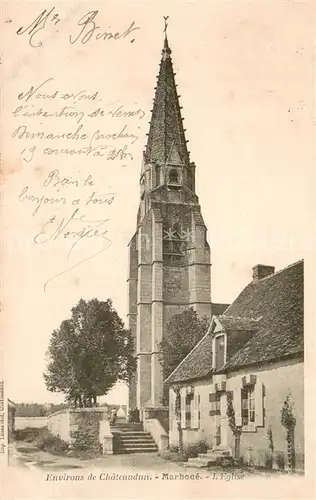 Mr Binet
Nous avons
l'intention de venir
Dimanche prochain
19 courant à 2h
Bonjour à tous
Environs de Châteaudun. - Marboué. - L'Église